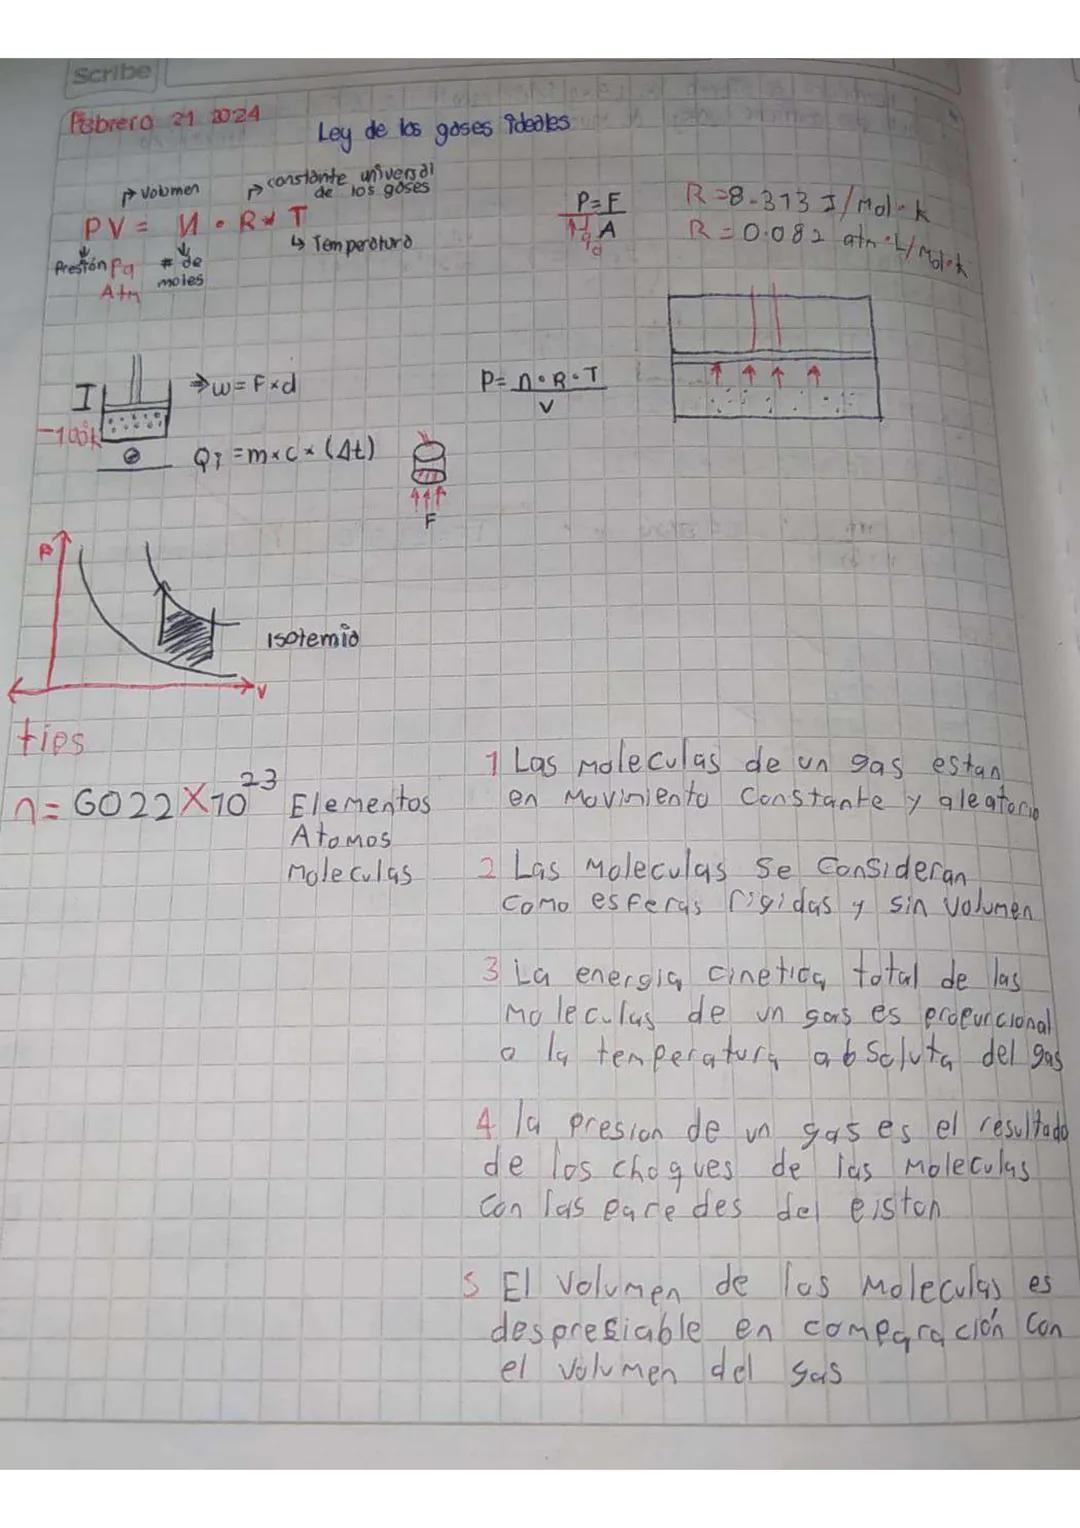 Scribe
Febrero 21 2024
Ley de los gases ideales
→ Volumen
→ constante universal
de los gases
PV = n • R * T
↓ Presión Pa
Atm
↓ # de
moles
↳ Temperatura
P = F
A
R = 8.313 J/Mol•k
R = 0.082 atm•L/Mol•k
I
-100k
→ w = F x d
Q = m x c x (Δt)
F
P = n • R • T
V
P
V
Isotemia
tips
n = 6022 X 10^23 Elementos
Atomos
Moleculas
1 Las Moleculas de un gas estan
en Movimiento Constante y aleatorio
2 Las Moleculas Se Consideran
Como esferas rigidas y sin Volumen
3 La energia cinetica total de las
Moleculas de un gas es propurcional
a la temperatura absoluta del gas
4 la presion de un gas es el resultado
de los choques de las Moleculas
Con las paredes del piston
5 El Volumen de las Moleculas es
despresiable en comparación Con
el Volumen del gas